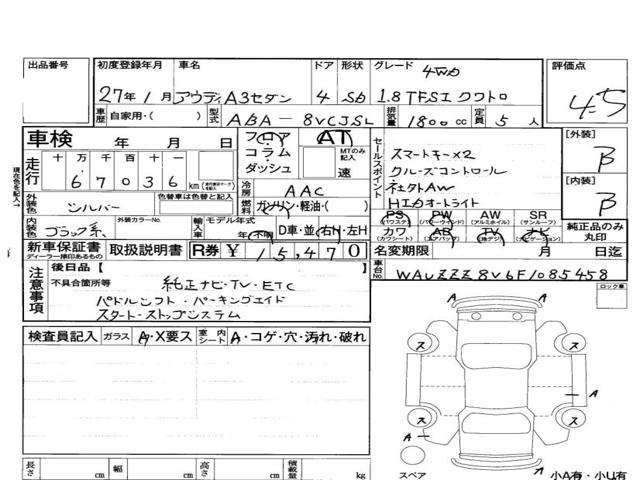 出品番号 初度登録年月 車名 ドア 形状 グレード 4WD 評価点
27年1月 アウディA3セダン 4 Sb 1.8 TFSI クワトロ 4.5
車歴 自家用・( ) 型式 ABA-8VCJSL 排気量 1800cc 定員 5人
車検 年 月 日 フロア コラム ダッシュ AT MTのみ記入 速
走行 十 万 千 百 十 一 67036 km
セールスポイント スマートキー×2
クルーズコントロール
社外AW
HIDオートライト
[外装] B
[内装] B
冷房 AAC
外装色 シルバー 色替車は色替と記入 燃料 ガソリン・軽油・( )
内装色 ブラック系 外装カラーNo. 輸入車 モデル年式 年(不明) D車・並 右H・左H
PS (パワステ) PW (パワーウインド) AW (アルミホイル) SR (サンルーフ)
カワ (カワシート) AB (エアバッグ) TV (地デジ) ナビ (ナビゲーション) 純正品のみ丸印
新車保証書 ディーラー捺印あるもの 取扱説明書 R券 ¥15,470 名変期限 月 日迄
注意事項 後日品 [ ] 車台No. WAUZZZ8V6F1085458
不具合箇所等 純正ナビ・TV・ETC
パドルシフト・パーキングエイド
スタート・ストップシステム
ロック車
検査員記入 ガラス A・X要ス 室内シート A・コゲ・穴・汚れ・破れ
A
ス ス
A
ス ス
A
A
スペア 小A有・小U有
長さ cm 幅 cm 高さ cm 積載量 kg
現在色を記入